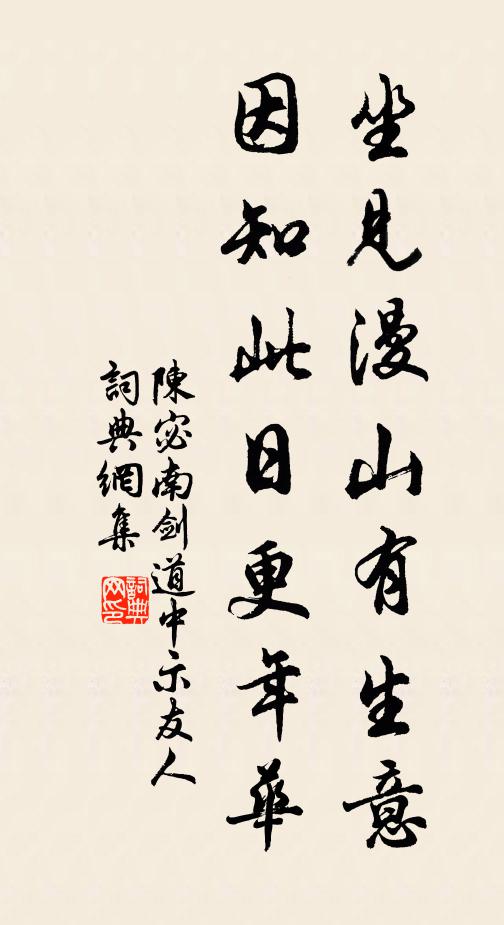 坐見漫山有生意
因知此日更年華
陳宓南劍道中示友人
詞典網集
詞典網印